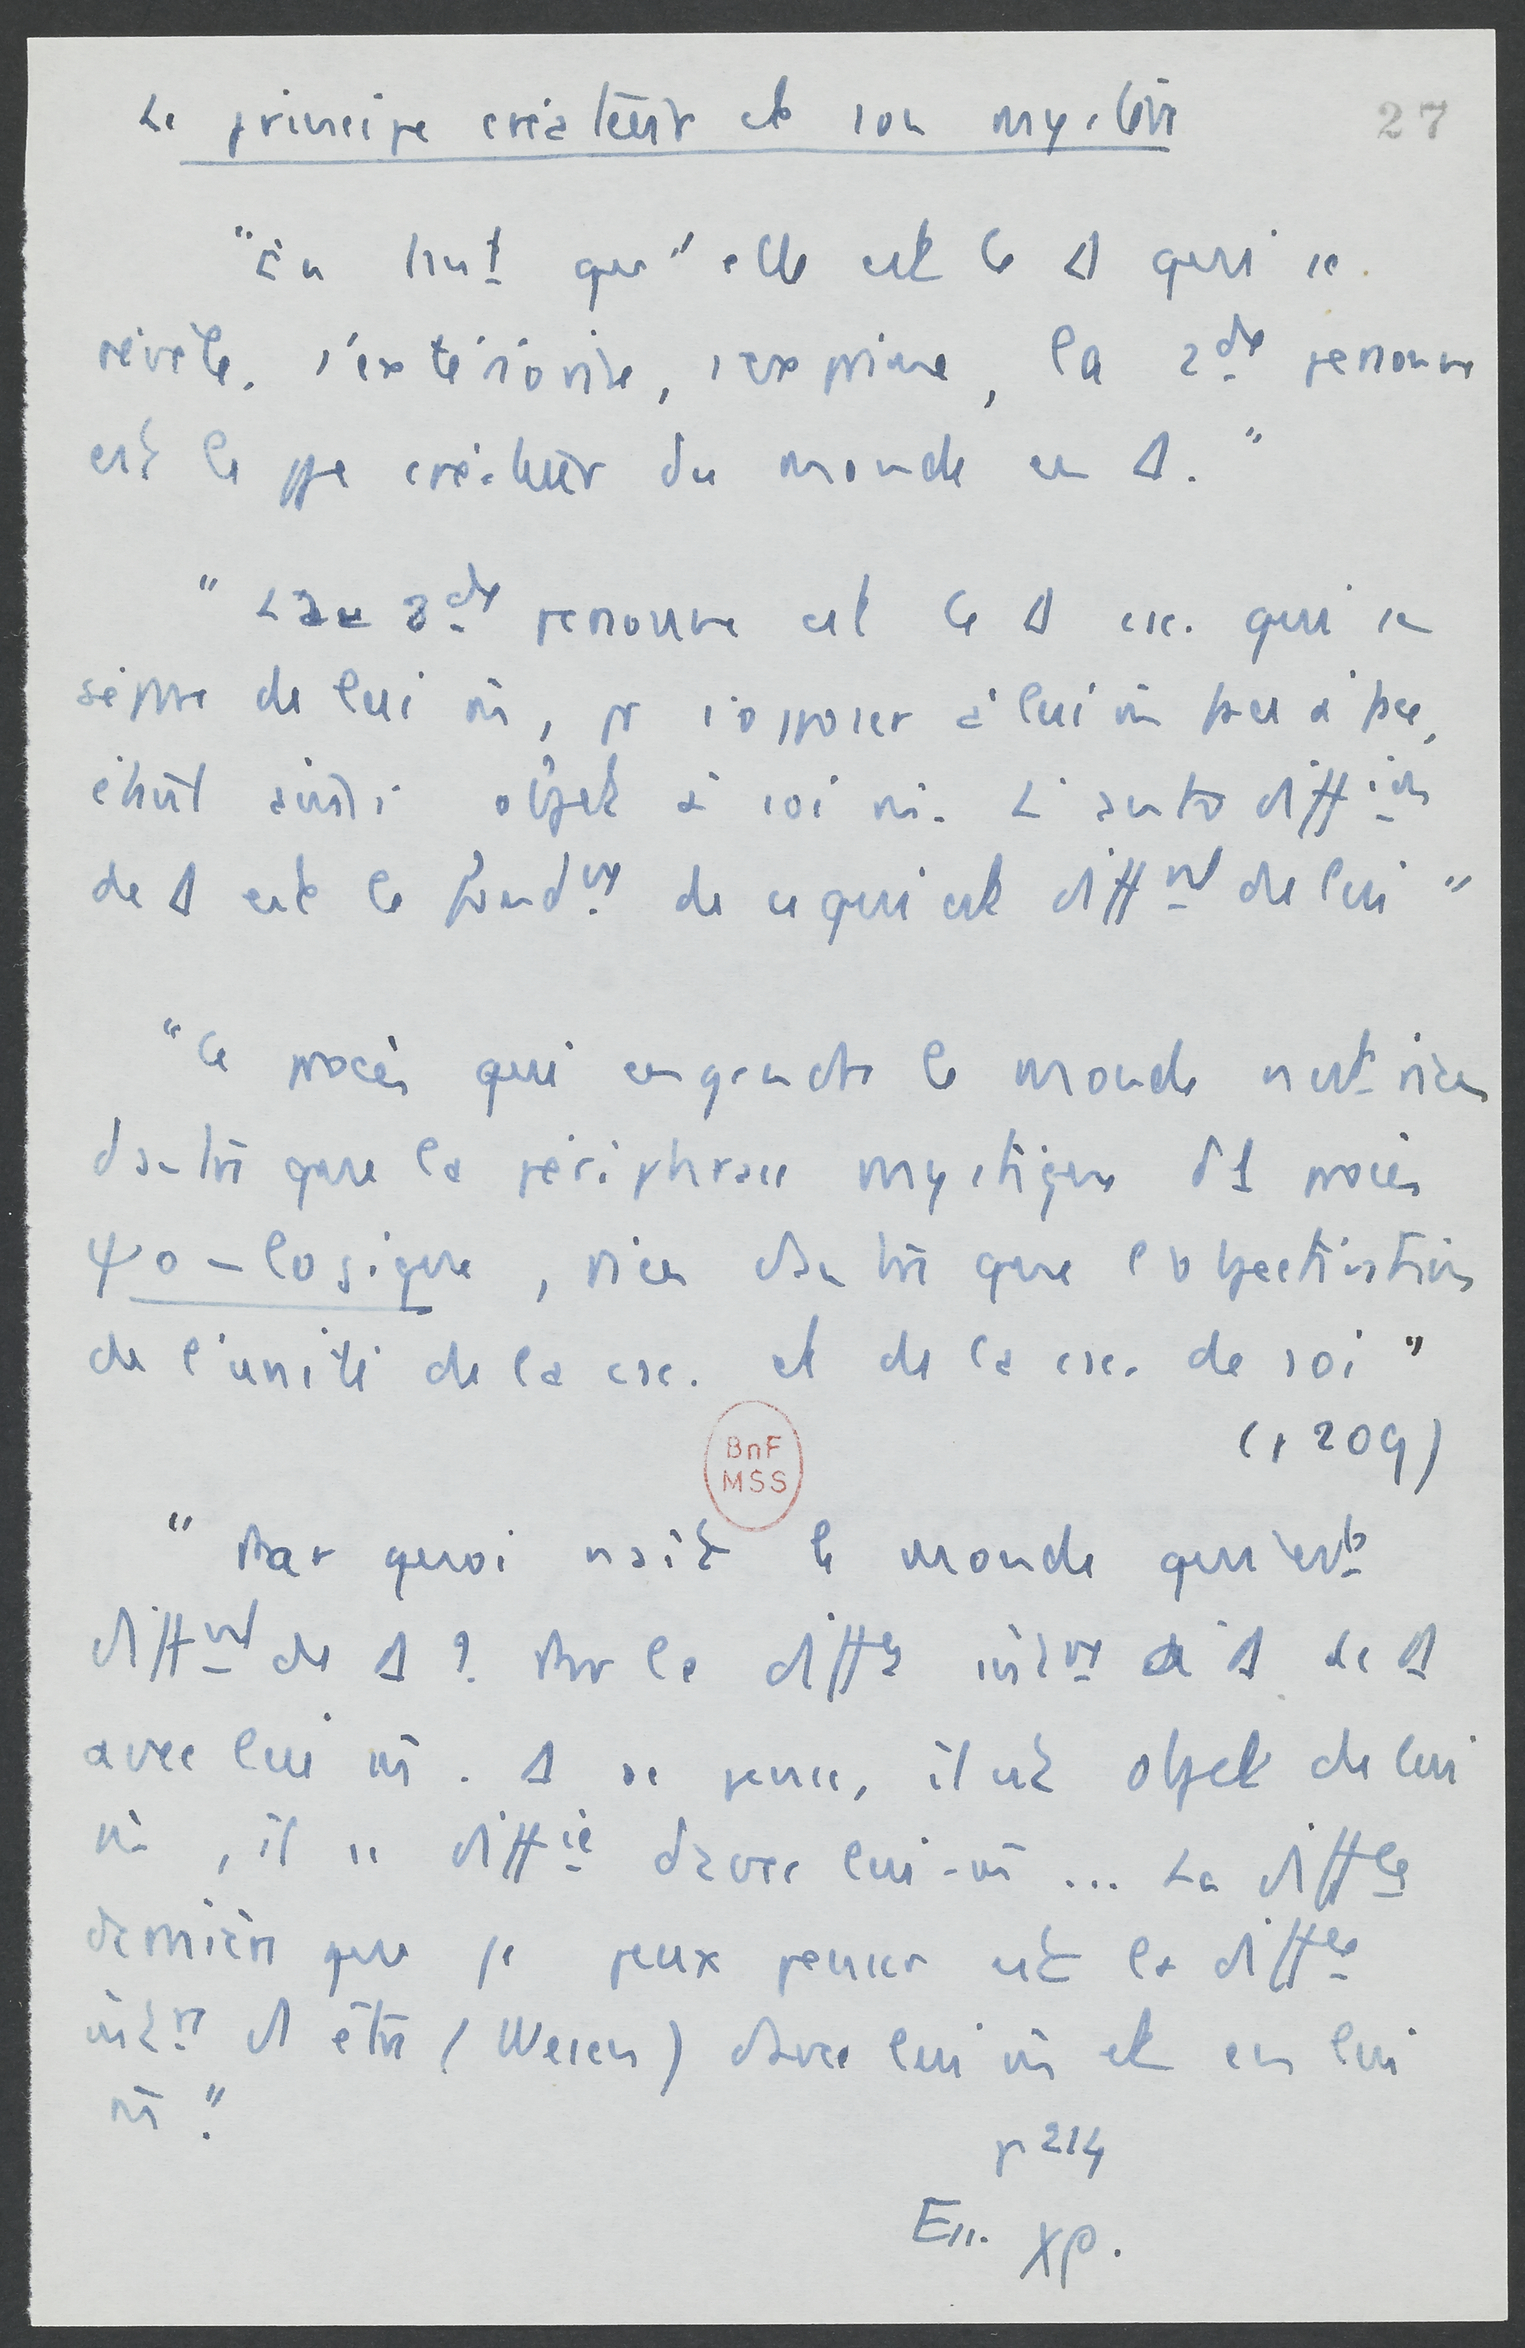 Le principe créateur et son mystère
27
"En tant qu'elle est le Δ qui se
révèle, s'extériorise, s'exprime, la 2de personne
est le ppe créateur du monde en Δ."
"La 2de personne est le Δ csc. qui se
sépare de lui m̂, pr s'opposer à lui m̂ peu à peu,
étant ainsi objet à soi m̂. L'auto diffion
de Δ est le fondmt de ce qui est diffnt de lui"
"Ce procès qui engendre le monde n'est rien
d'autre que la périphrase mystique d'1 procès
ψo-logique, rien d'autre que l'objectivation
de l'unité de la csc. et de la csc. de soi"
(p 209)
"Par quoi naît le monde qui est
diffnt de Δ ? Par la diffce intne de Δ
avec lui m̂. Δ se pense, il est objet de lui
m̂, il se diffcie d'avec lui-m̂ ... La diffce
dernière que je peux penser est la diffce
intne d'1 être (Wesen) d'avec lui m̂ et en lui
m̂."
p 214
Ess. χρ.
BnF
MSS